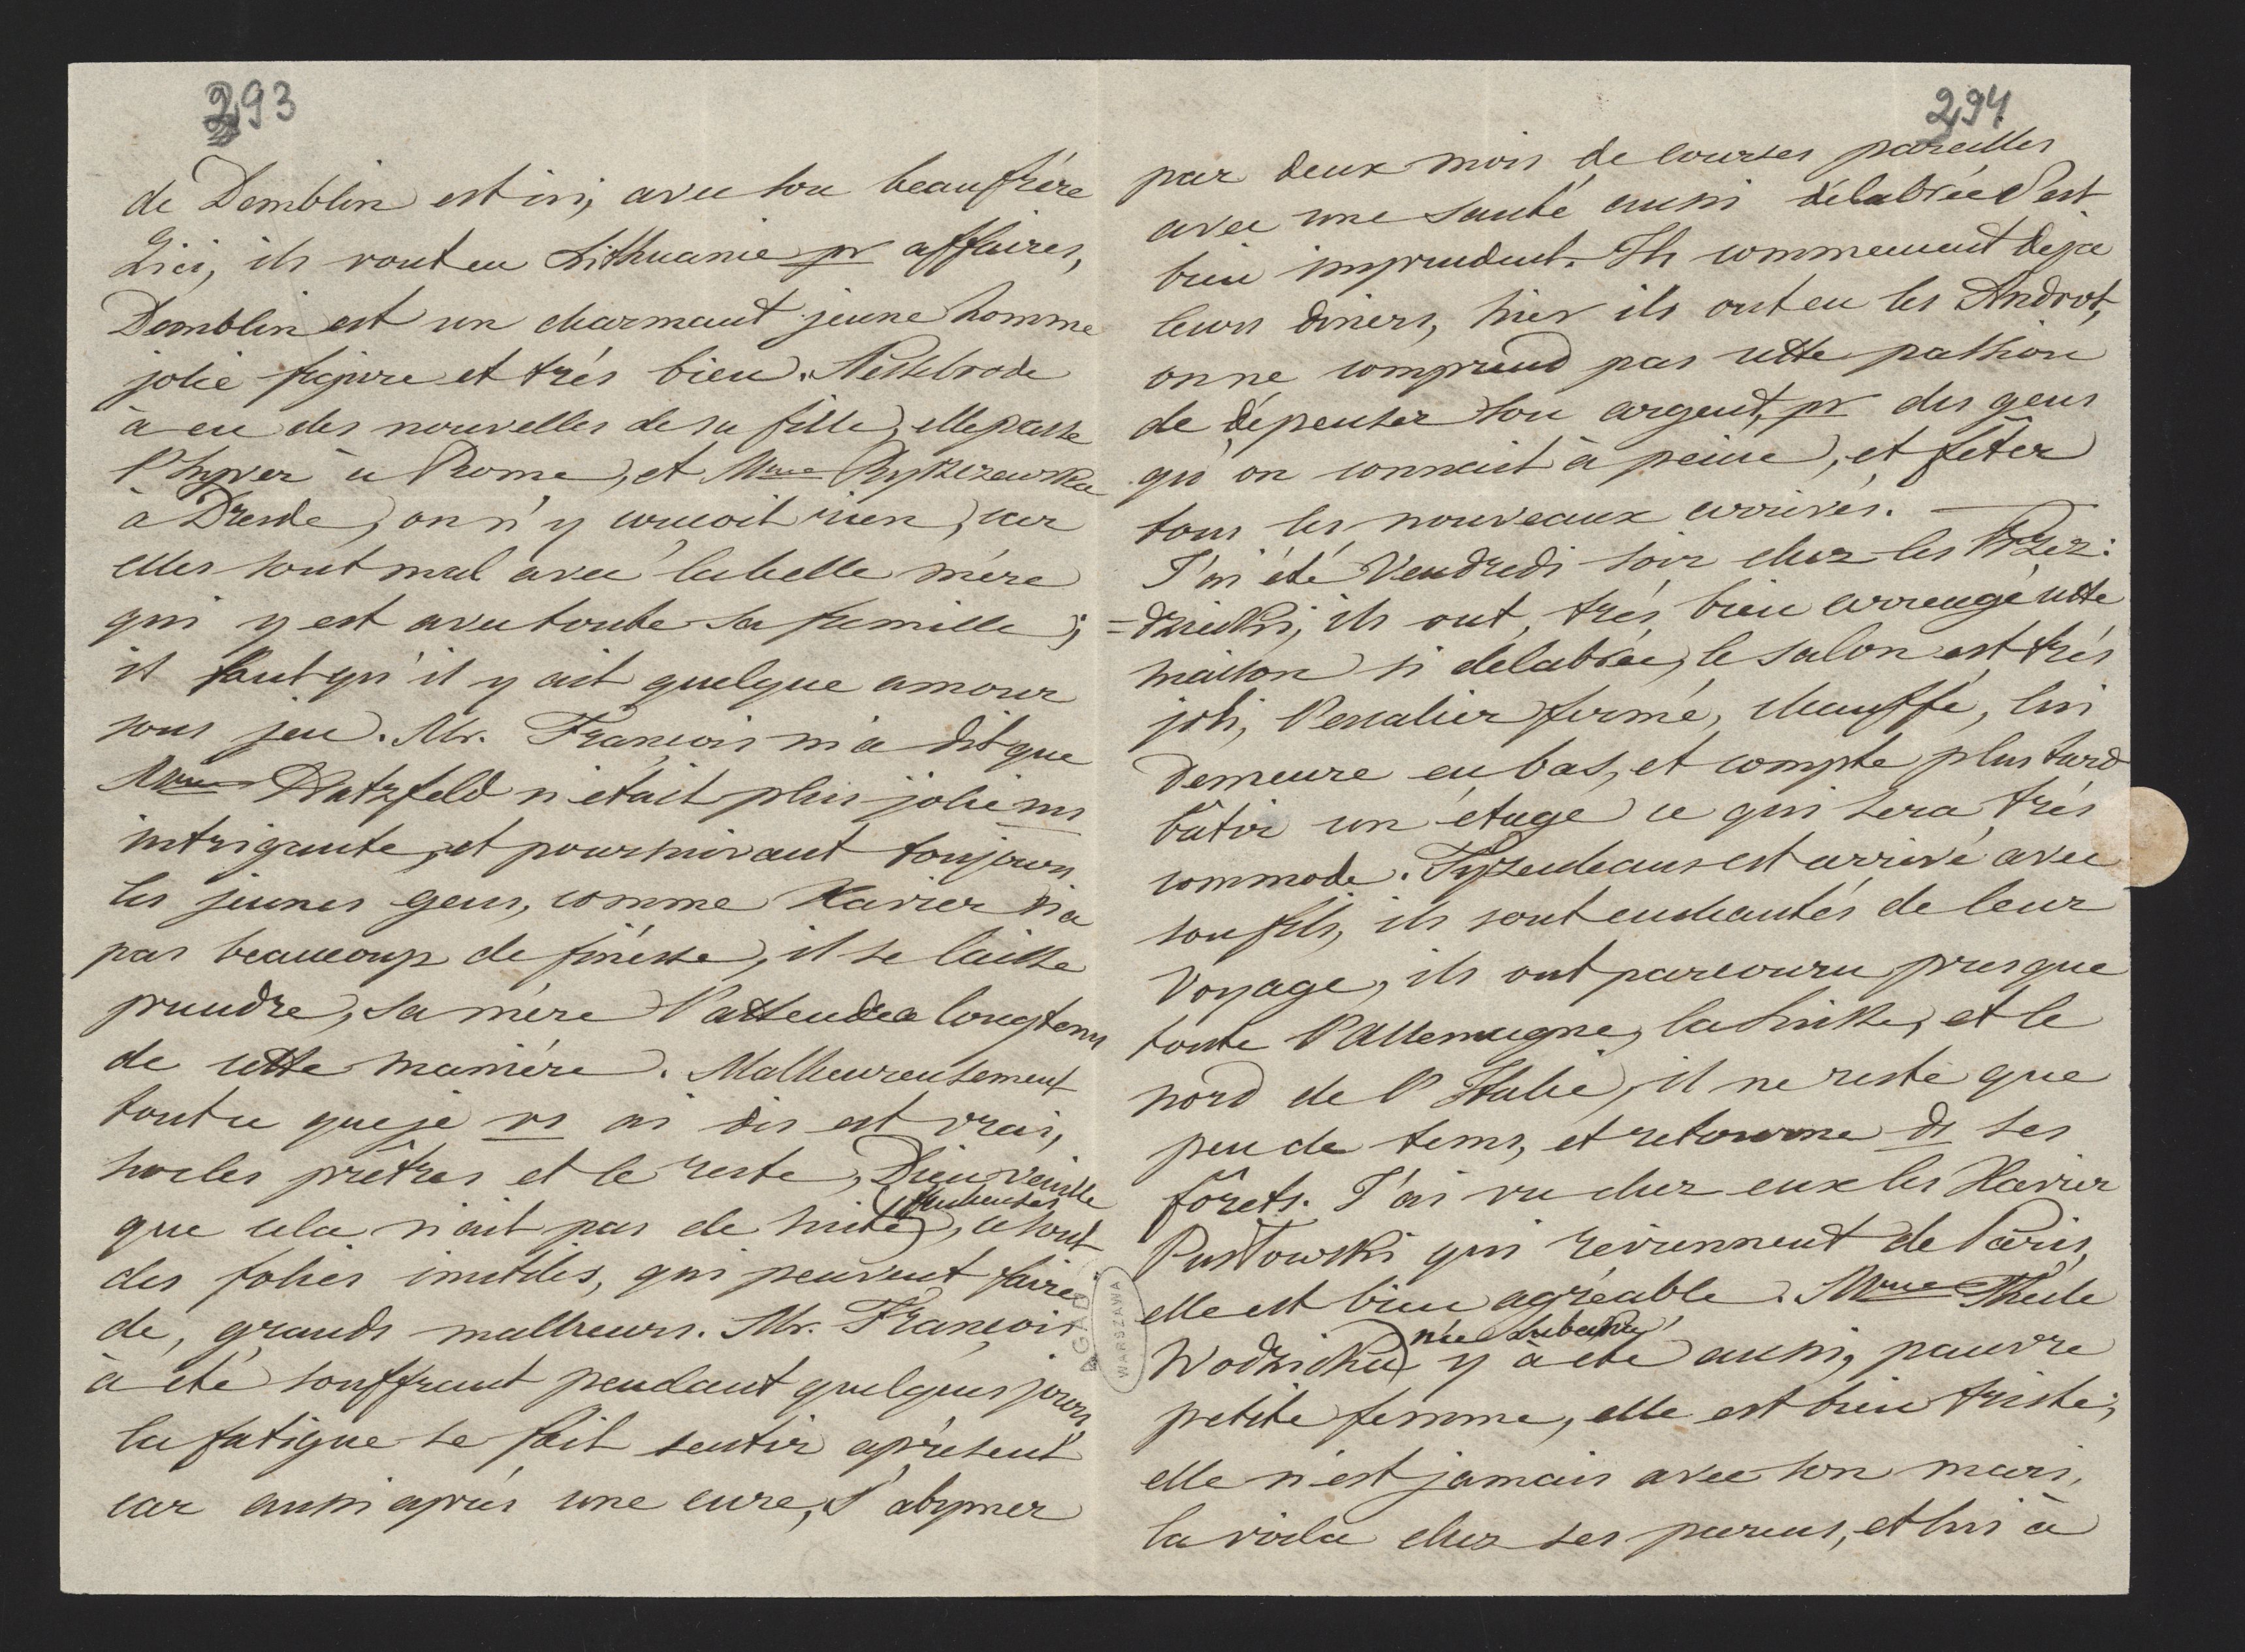 293
de Demblin est ici, avec son beaufrère
Zici, ils vont en Lithuanie pr affaires,
Demblin est un charmant jeune homme
jolie figure et trés bien. Nesselrode
à eu des nouvelles de sa fille, elle passe
l'hyver à Rome, et Mme
à Dresde, on n'y concoit rien, car
elles sont mal avec la belle mére
qui y est avec toute sa famille;
il faut qu'il y ait quelque amour
sous jeu. Mr. François m'a dit que
Mme Hatzfeld n'etait plus jolie ms
intrigante, et poursuivant toujours
les jeunes gens, comme Xavier n'a
pas beaucoup de finesse, il se laisse
prendre, sa mére l'attendra longtems
de cette maniére. Malheureusement
tout ce que je vs ai dis est vrai,
sur les prêtres et le reste, Dieu veuille
que cela n'ait pas de suite, ce sont
des folies inutiles, qui peuvent faire
de, grands malheurs. Mr. François
à été souffrant pendant quelques jours,
la fatigue se fait sentir aprésent
car aussi aprés une cure, s'abymer
AGAD WARSZAWA
294
par deux mois de courses pareilles
avec une santé aussi délabrée c'est
bien imprudent. Ils commencent deja
leurs diners, hier ils ont eu les Androt,
on ne comprend pas cette passion
de dépenser son argent, pr des gens
qu'on connait à peine, et fêter
tous les nouveaux arrivés. —
J'ai été Vendredi soir chez les Przez:
=dziecki, ils ont trés bien arrengé cette
maison si delabrée, le salon est trés
joli, l'escalier fermé, chauffé, lui
demeure en bas, et compte plus tard
bâtir un étage ce qui sera trés
commode. Tyzenhaus est arrivé avec
son fils, ils sont enchantés de leur
voyage, ils ont parcouru presque
toute l'Allemagne, la Suisse, et le
nord de l'Italie, il ne reste que
peu de tems, et retourne ds ses
fôrets. J'ai vu chez eux les Xavier
Pusłowski qui reviennent de Paris,
elle est bien agréable. Mme
Wodzicka née Lubecka, y à été aussi, pauvre
petite femme, elle est bien triste;
elle n'est jamais avec son mari,
la voila chez ses parens, et lui à